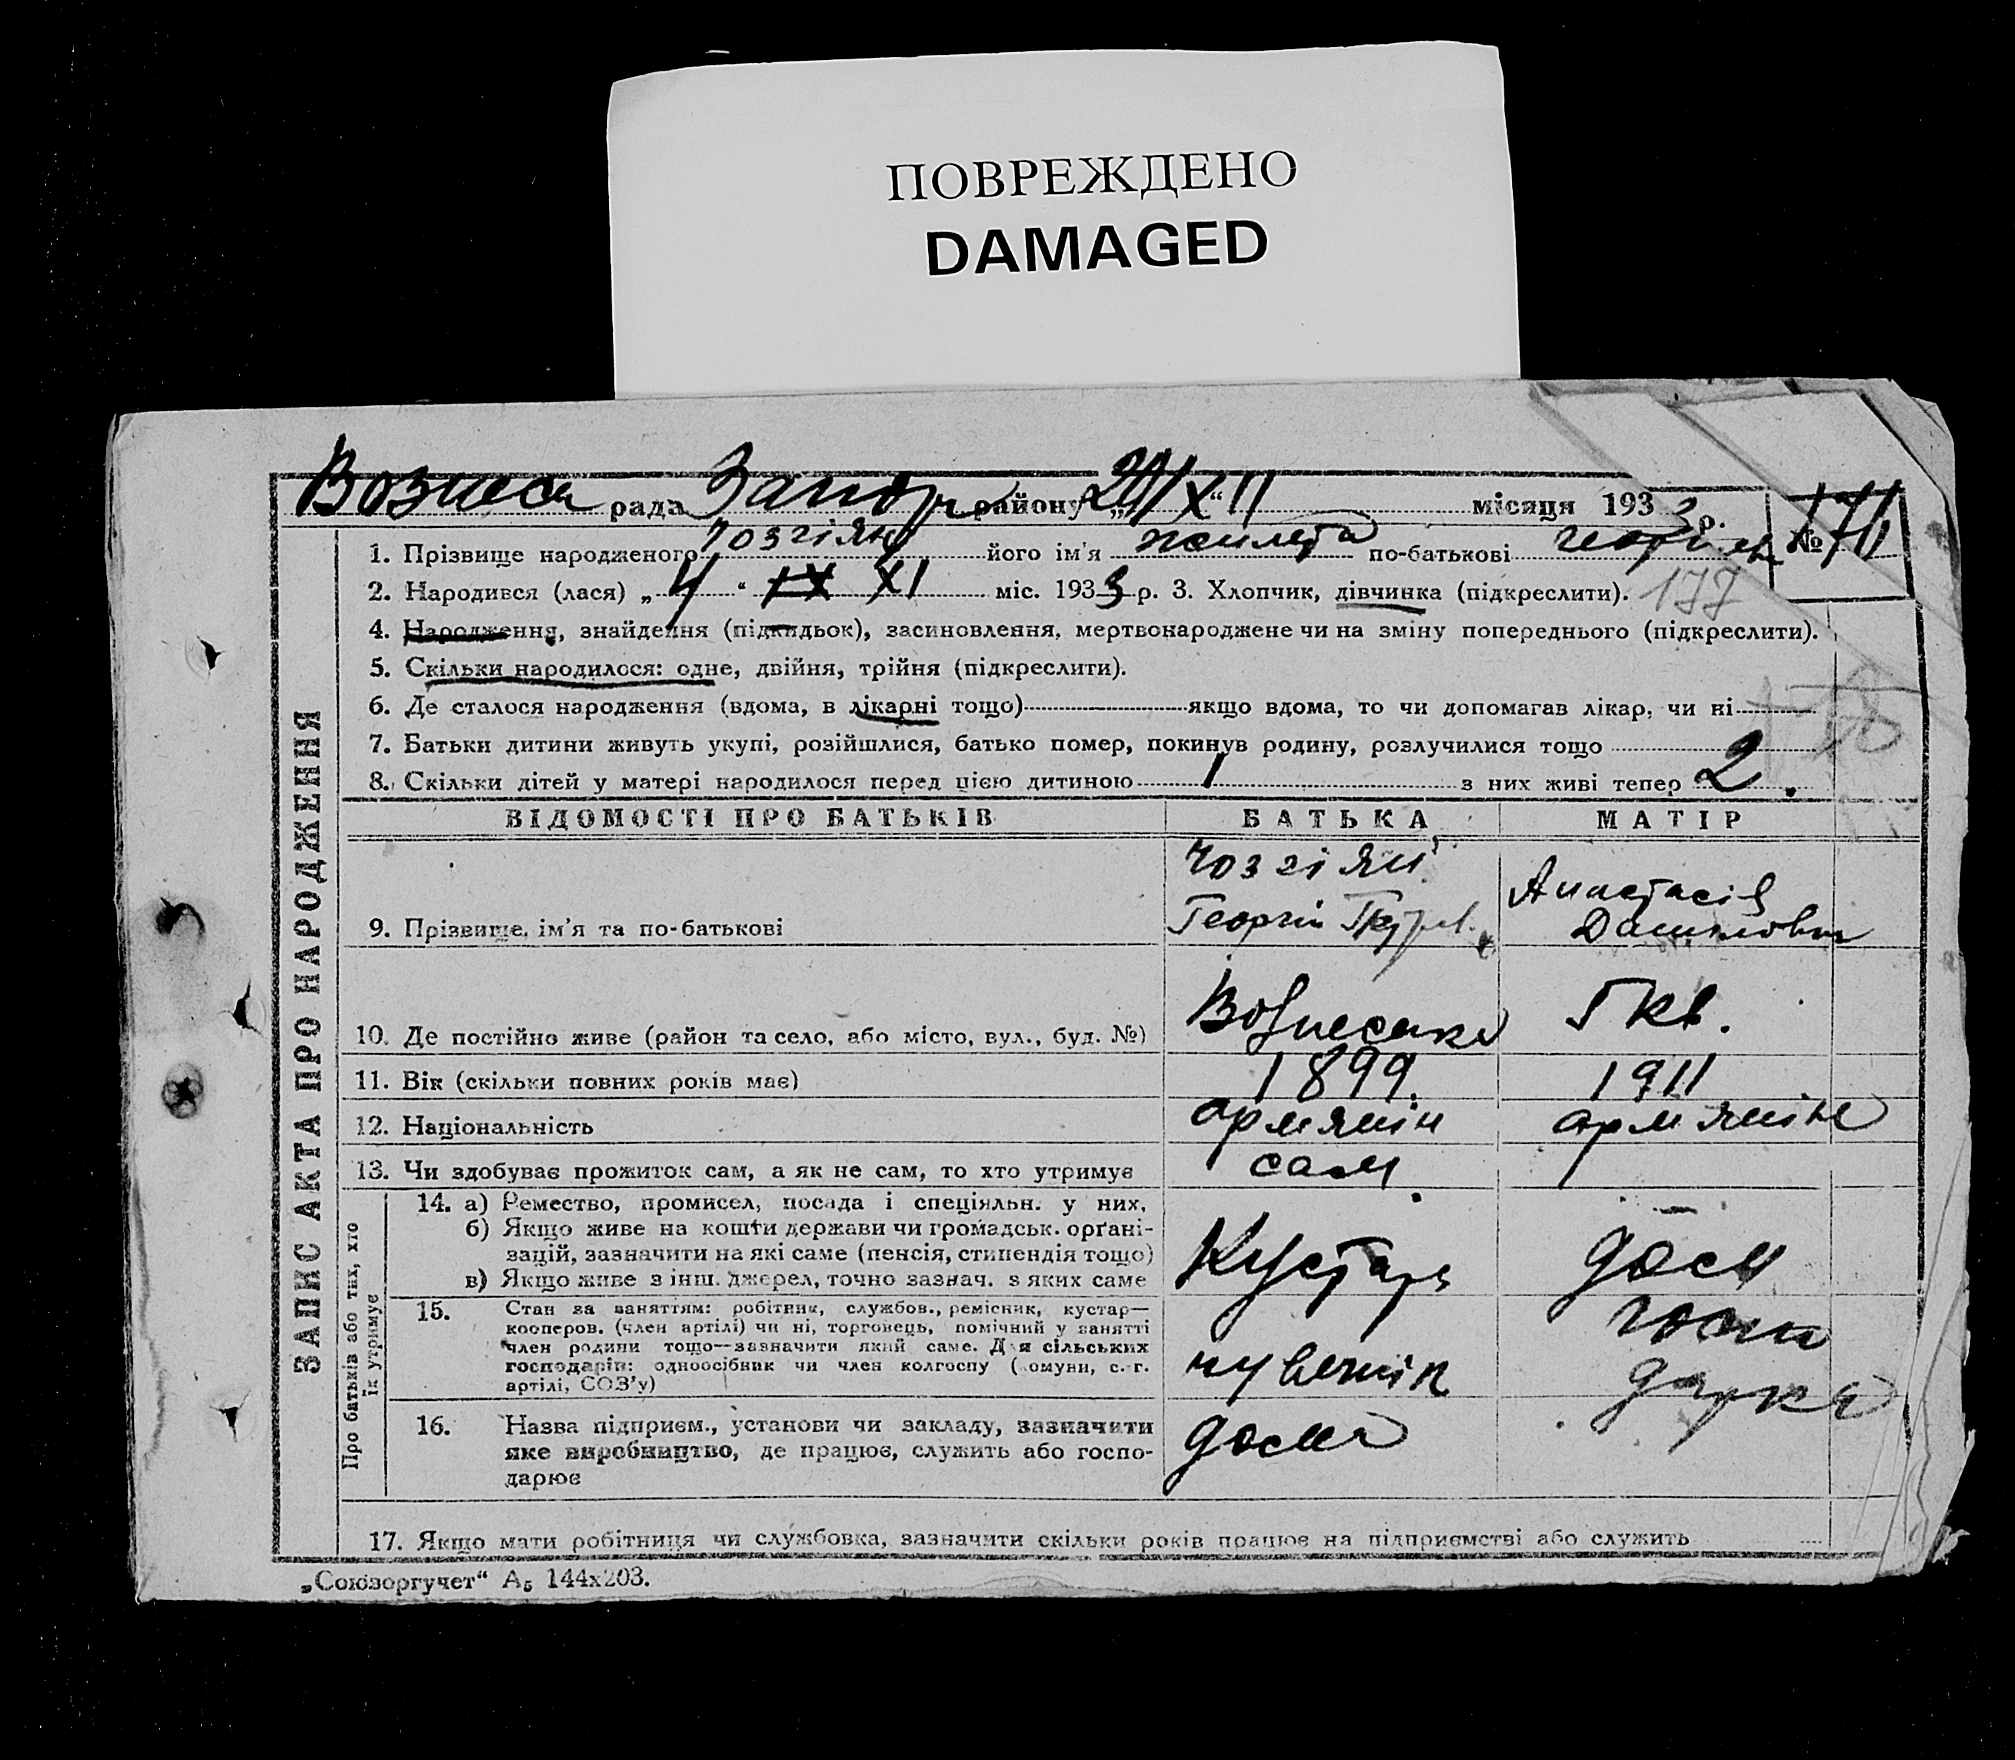 ПОВРЕЖДЕНО
DAMAGED
рада Запор району XII місяця 193 р. №
1. Прізвище народженого Чозгіян його ім'я Жилета по-батькові
2. Народився (лася) „4“ XI міс. 1933 р. 3. Хлопчик, дівчинка (підкреслити). 177
4. Народження, знайдення (підкидьок), засиновлення, мертвонароджене чи на зміну попереднього (підкреслити).
5. Скільки народилося: одне, двійня, трійня (підкреслити).
6. Де сталося народження (вдома, в лікарні тощо) якщо вдома, то чи допомагав лікар, чи ні
7. Батьки дитини живуть укупі, розійшлися, батько помер, покинув родину, розлучилися тощо
8. Скільки дітей у матері народилося перед цією дитиною 1 з них живі тепер 2.
ВІДОМОСТІ ПРО БАТЬКІВ БАТЬКА МАТІР
Чозгіян
Георгій Анастасія
9. Прізвище, ім'я та по-батькові
10. Де постійно живе (район та село, або місто, вул., буд. №) Вознесенка
11. Вік (скільки повних років має) 1899 1911
12. Національність армянін армянін
13. Чи здобуває прожиток сам, а як не сам, то хто утримує сам
14. а) Ремество, промисел, посада і спеціяльн. у них.
б) Якщо живе на кошти держави чи громадськ. орґані-
зацій, зазначити на які саме (пенсія, стипендія тощо)
в) Якщо живе з інш. джерел, точно зазнач. з яких саме
Кустарь дом
15. Стан за заняттям: робітник, службов., ремісник, кустар—
кооперов. (член артілі) чи ні, торговець, помічний у занятті
член родини тощо—зазначити який саме. Для сільських
господарів: одноосібник чи член колгоспу (комуни, с.-г.
артілі, СОЗ'у)
госпо
дарка
16. Назва підприєм., установи чи закладу, зазначити
яке виробництво, де працює, служить або госпо-
дарює
дома
17. Якщо мати робітниця чи службовка, зазначити скільки років працює на підприємстві або служить
„Союзоргучет“ А₅ 144х203.
ЗАПИС АКТА ПРО НАРОДЖЕННЯ
Про батьків або тих, хто
їх утримує